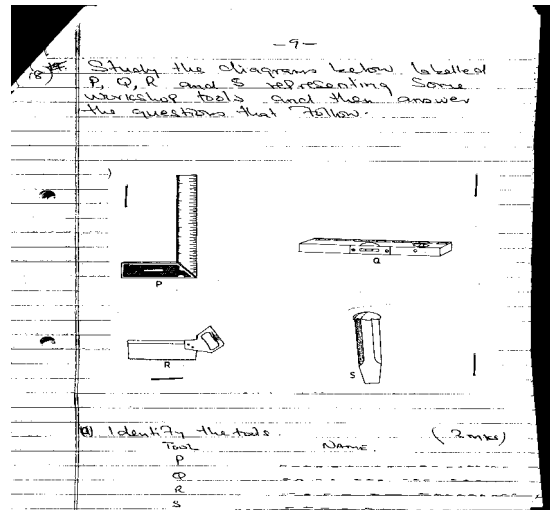 -9-
Study the diagrams below labelled
P, Q, R and S representing some
workshop tools and then answer
the questions that follow.
P
Q
R
S
a) Identify the tools. (2mks)
TOOL NAME
P
Q
R
S